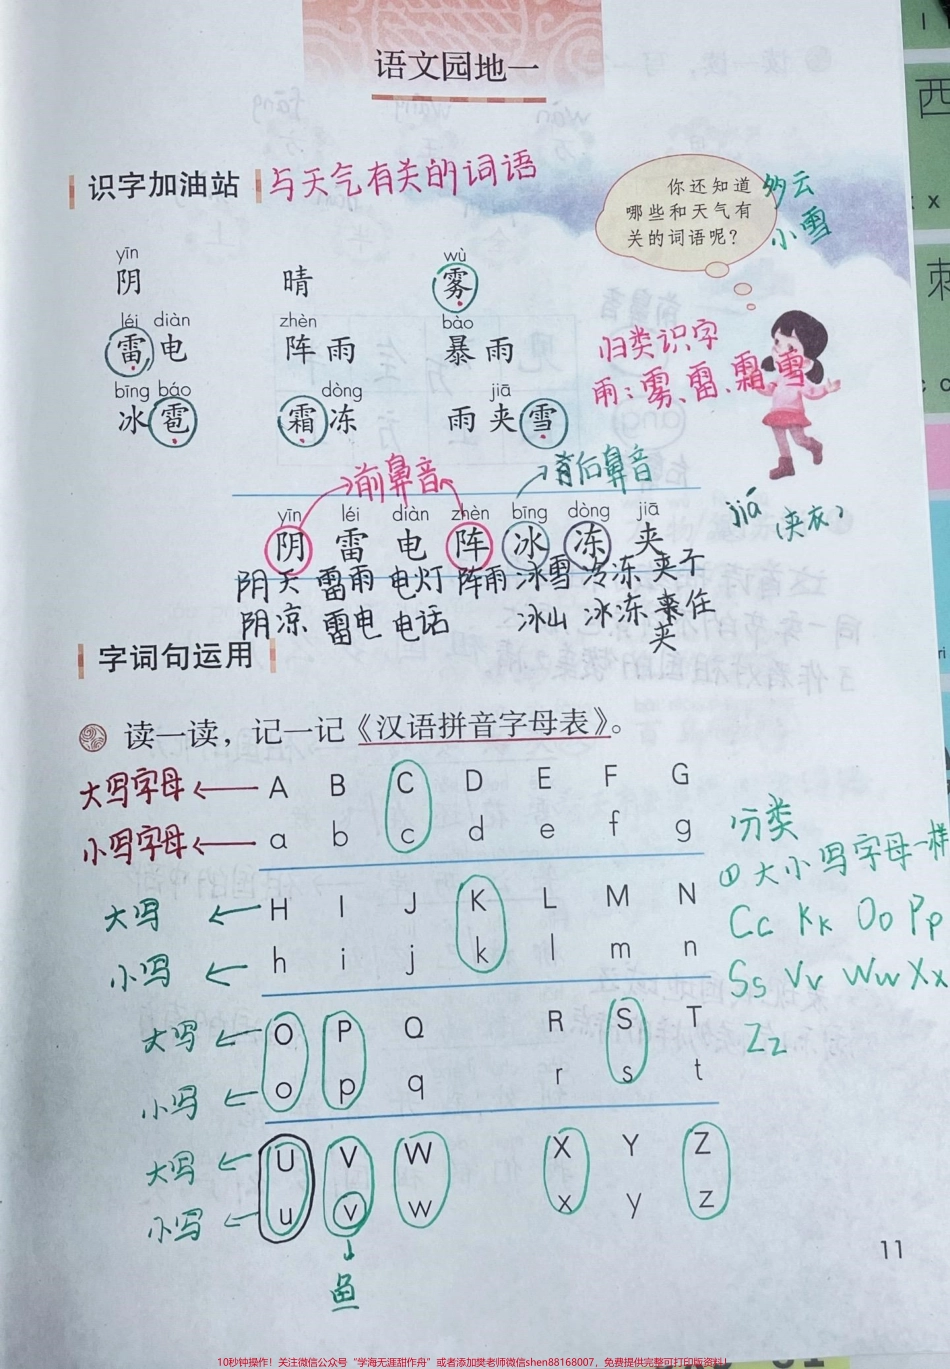 语文园地一
识字加油站 与天气有关的词语
你还知道
哪些和天气有
关的词语呢？
多云
小雪
yīn wù
阴 晴 雾
léi diàn zhèn bào
雷电 阵雨 暴雨
bīng báo dòng jiā
冰雹 霜冻 雨夹雪
归类识字
雨：雾、雷、霜、雪
前鼻音 后鼻音
yīn léi diàn zhèn bīng dòng jiā
阴 雷 电 阵 冰 冻 夹
jiá 夹衣？
阴天 雷雨 电灯 阵雨 冰雪 冷冻 夹子
阴凉 雷电 电话 冰山 冰冻 夹住
夹
字词句运用
读一读，记一记《汉语拼音字母表》。
大写字母 ← A B C D E F G
小写字母 ← a b c d e f g
大写 ← H I J K L M N
小写 ← h i j k l m n
大写 ← O P Q R S T
小写 ← o p q r s t
大写 ← U V W X Y Z
小写 ← u v w x y z
鱼
分类
① 大小写字母一样
Cc Kk Oo Pp
Ss Vv Ww Xx
Zz
11
10秒钟操作！关注微信公众号“学海无涯甜作舟”或者添加樊老师微信shen88168007，免费提供完整可打印版资料！